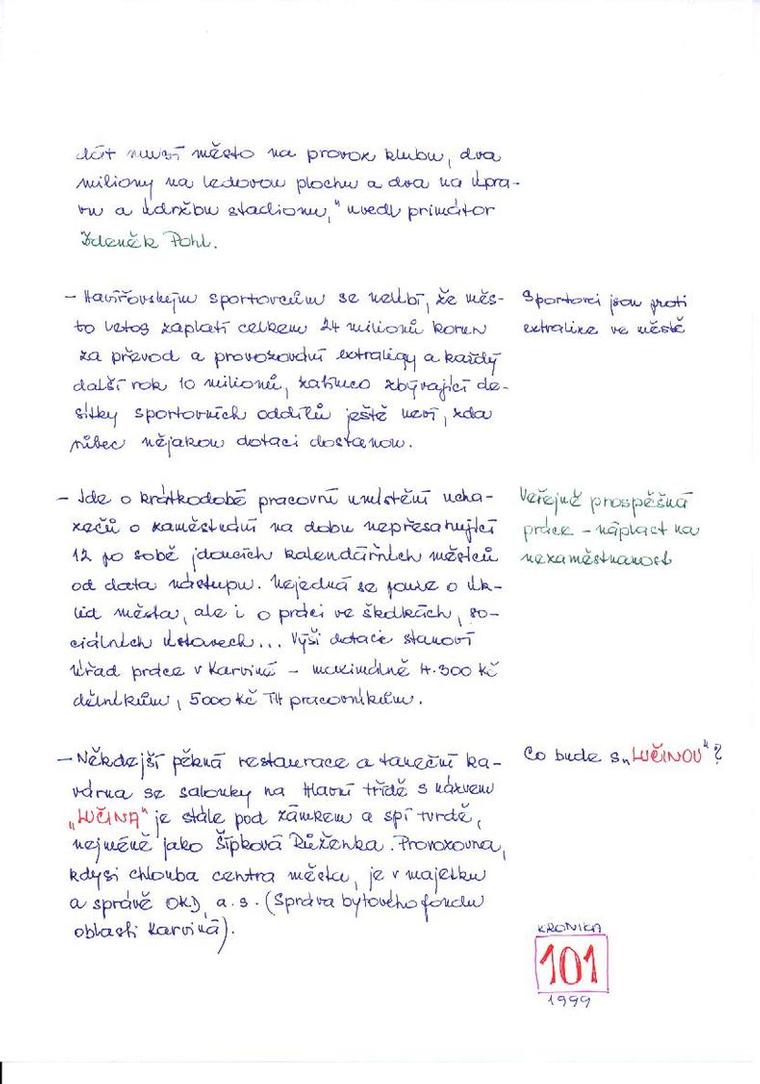 dát musí město na provoz klubu, dva
miliony na ledovou plochu a dva na úpra-
vu a údržbu stadionu," uvedl primátor
Zdeněk Pohl.
- Havířovským sportovcům se nelíbí, že měs-
to letos zaplatí celkem 24 milionů korun
za převod a provozování extraligy a každý
další rok 10 milionů, zatímco zbývající de-
sítky sportovních oddílů ještě neví, zda
vůbec nějakou dotaci dostanou.
Sportovci jsou proti
extralize ve městě
- Jde o krátkodobé pracovní umístění ucha-
zečů o zaměstnání na dobu nepřesahující
12 po sobě jdoucích kalendářních měsíců
od data nástupu. Nejedná se pouze o úk-
lid města, ale i o práci ve školkách, so-
ciálních ústavech... Výši dotace stanoví
Úřad práce v Karviné - maximálně 4.300 Kč
dělníkům, 5000 Kč TH pracovníkům.
Veřejně prospěšná
práce - náplast na
nezaměstnanost
- Někdejší pěkná restaurace a taneční ka-
várna se salonky na Hlavní třídě s názvem
„LUČINA" je stále pod zámkem a spí tvrdě,
nejméně jako Šípková Růženka. Provozovna,
kdysi chlouba centra města, je v majetku
a správě OKD, a.s. (Správa bytového fondu
oblasti Karviná).
Co bude s „LUČINOU"?
KRONIKA
101
1999